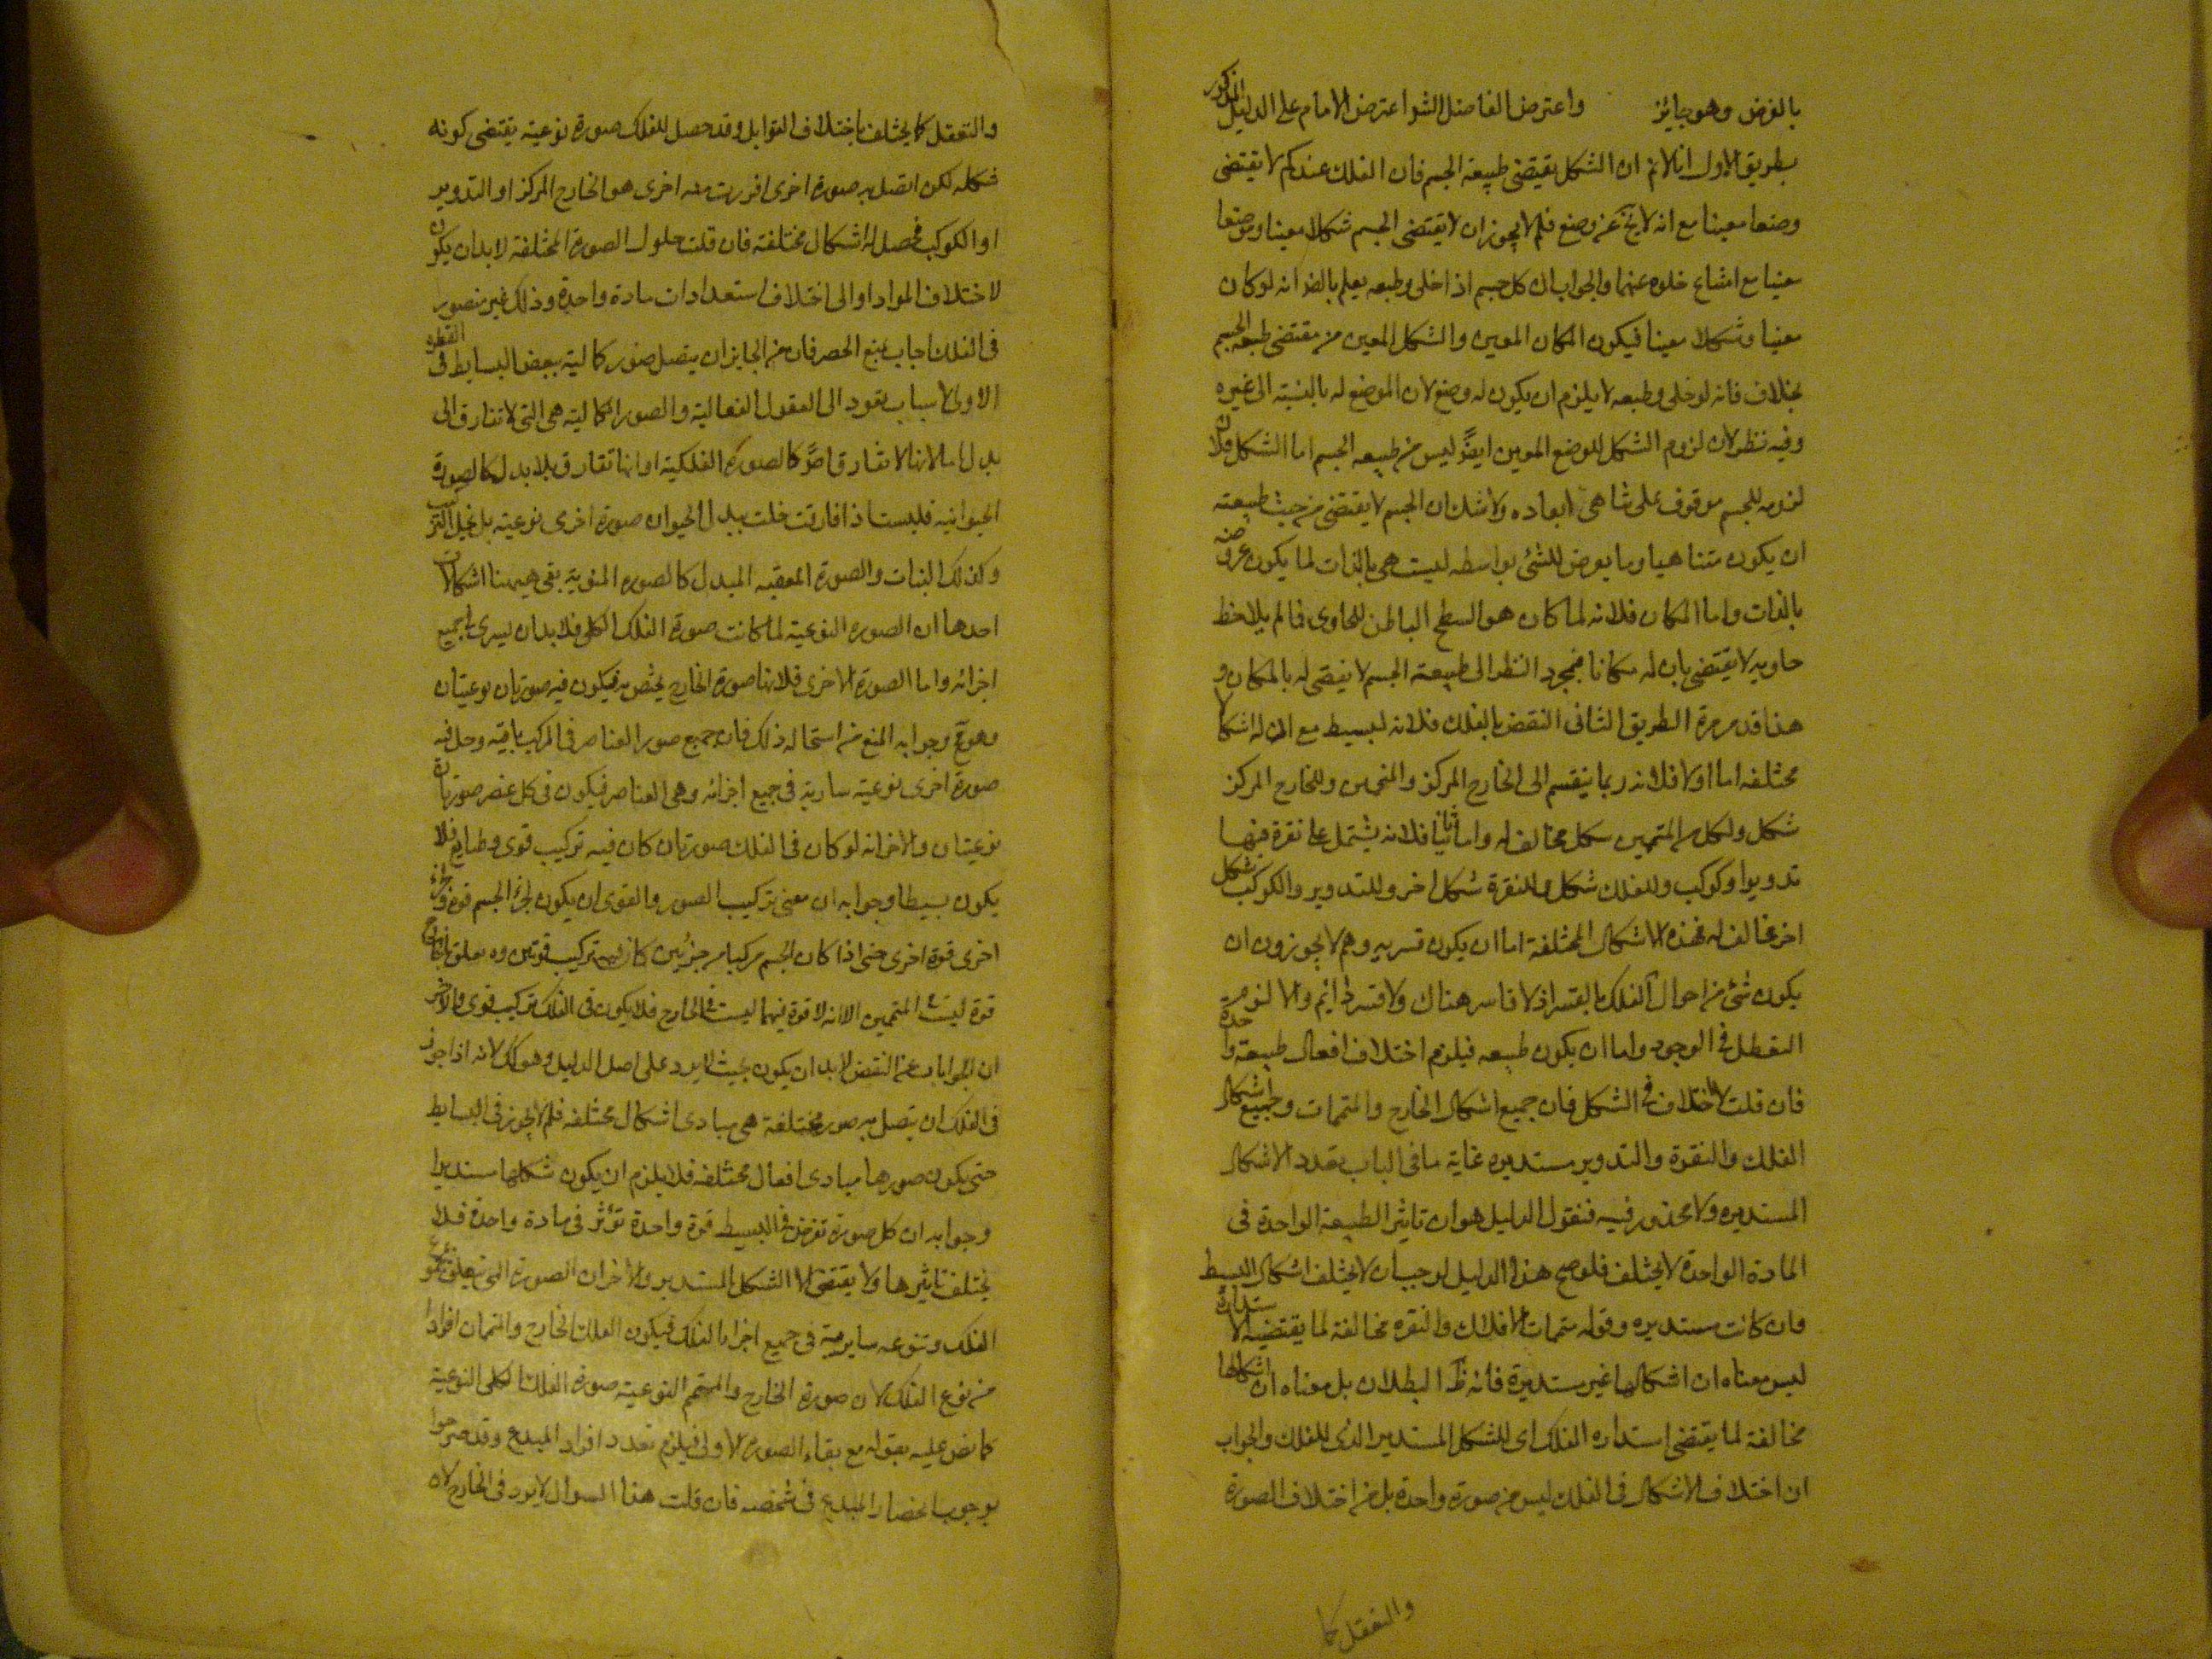 بالفرض وهو جايز واعترض الفاضل الشو اعترض الامام على الدليل المذكور
بطريق الاول انا لانم ان الشكل يقتضى طبيعة الجسم فان الفلك عندكم لا يقتضى
وضعا معينا مع انه لا يخ عن وضع فلم لا يجوز ان لا يقتضى الجسم شكلا معينا وموضعا
معينا مع امتناع خلوه عنهما والجواب ان كل جسم اذا خلى وطبعه يعلم بالضر انه لو كان
معينا وشكلا معينا فيكون المكان المعين والشكل المعين من مقتضى طبيعه الجسم
بخلاف فانه لو خلى وطبعه لا يلزم ان يكون له وضع لان الموضع له بالنسبة الى غيره
وفيه نظر لان لزوم الشكل للوضع المعين ايضً ليس من طبيعه الجسم اما الشكل فلان
لزومه للجسم موقوف على تناهى ابعاده ولا شك ان الجسم لا يقتضى من حيث طبيعته
ان يكون متناهيا وما يعرض للشئ بواسطه ليست هى بالذات لما يكون عروضه
بالذات واما المكان فلانه لما كان هو السطح الباطن للحاوى فما لم يلاحظ
حاويه لا يقتضى بان له مكانا فبمجرد النظر الى طبيعة الجسم لا يقتضى له بالمكان و
هذا قد مر مرة الطريق الثانى النقض بالفلك فلانه لبسيط مع ان له اشكالا
مختلفه اما اولا فلانه ربما ينقسم الى الخارج المركز والمتممين وللخارج المركز
شكل ولكل من المتممين شكل مخالف له واما ثانيا فلانه يشتمل على نقرة فيها
تدوير او كوكب وللفلك شكل وللنقرة شكل اخر وللتدوير والكوكب شكل
اخر مخالف له فهذه الاشكال المختلفة اما ان يكون قسريه وهم لا يجوزون ان
يكون شئ من احوال الفلك بالقسر اذ لا قاسر هناك ولا قسر دائم والا لزم
التعطل فى الوجود واما ان يكون طبيعه فيلزم اختلاف افعال طبيعة واحدة
فان قلت لا اختلاف فى الشكل فان جميع اشكال الخارج والمتممات وجميع اشكال
الفلك والنقرة والتدوير مستديره غاية ما فى الباب تعدد الاشكال
المستديره ولا محذور فيه فنقول الدليل هو ان تاثير الطبيعة الواحدة فى
المادة الواحدة لا يختلف فلو صح هذا الدليل لوجب ان لا يختلف اشكال البسيط
وان كانت مستديره وقوله متممات الافلاك والنقره مخالفة لما يقتضيه الاستدارة
ليس معناه ان اشكالها غير مستديرة فانه ظ البطلان بل معناه ان اشكالها
مخالفة لما يقتضى استداره الفلك اى للشكل المستدير الذى للفلك والجواب
ان اختلاف الاشكال فى الفلك ليس من صورة واحدة بل من اختلاف الصورة
والتعقل كما
والتعقل كما يختلف باختلاف القوابل وقد حصل للفلك صورة نوعية يقتضى كونه
شكله لكن اتصل به صورة اخرى افرزت منه اخرى هو الخارج المركز او التدوير
او الكوكب فحصل له اشكال مختلفة فان قلت حلول الصورة المختلفة لا بد ان يكون
لاختلاف المواد او الى اختلاف استعدادات مادة واحدة وذلك غير متصور
فى الفلك اجاب بمنع الحصر فان من الجايز ان يتصل صور كمالية ببعض البسايط فى الفطرة
الاولى لاسباب تعود الى العقول الفعالية والصور الكمالية هى التى لا تفارق الى
بدل اما لانها لا تفارق اصً كالصورة الفلكية او انها تفارق بلا بدل كالصورة
الحيوانيه فليست اذا فارقت خلت ببدل الحيوان صورة اخرى نوعية بل ينحل التركيب
وكذلك النبات والصورة المعقبه المبدل كالصوره المنوية بقى ههنا اشكالان
احدها ان الصوره النوعية لما كانت صورة الفلك الكلى فلا بد ان يسرى بجميع
اجزائه واما الصورة الاخرى فلانها صورة الخارج يختص به فيكون فيه صورتان نوعيتان
وهو مح وجوابه المنع من استحاله ذلك فان جميع صور العناصر فى المركب باقية وحل فيه
صورة اخرى نوعية سارية فى جميع اجزائه وهى العناصر فيكون فى كل عنصر صورتان
نوعيتان والاخر انه لو كان فى الفلك صورتان كان فيه تركيب قوى وطبايع فلا
يكون بسيطا وجوابه ان معنى تركيب الصور والقوى ان يكون لجزء الجسم قوة ولجزء
اخرى قوة اخرى حتى اذا كان الجسم مركبا من جزئين كان تركيب قوتين
قوة ليست فى المتممين الا انه لا قوة فيهما ليست فى الخارج فلا يكون فى الفلك تركيب قوى والاخر
ان الجوابات عن النقض لا بد ان يكون بحيث لا يرد على اصل الدليل وهو كك لانه اذا جوز
فى الفلك ان يتصل به صور مختلفة هى مبادى اشكال مختلفه فلم لا يجوز فى البسايط
حتى يكون صورها مبادى افعال مختلفه فلا يلزم ان يكون شكلها مستديرا
وجوابه ان كل صورة تفرض فى البسيط قوة واحدة تؤثر فى مادة واحدة فلا
يختلف تاثيرها ولا يقتضى الا الشكل المستدير والاخر ان الصورة التى تتعلق
الفلك وتنوعه سايرية فى جميع اجزاء الفلك فيكون الفلك الخارج والمتممان افرادا
من نوع الفلك لان صورة الخارج والمتمم النوعية صورة الفلك الكلى النوعية
كما نص عليه بقوله مع بقاء الصورة الاولى فيلزم تعدد افراد المبدع وقد صرحوا
بوجوب انحصار المبدع فى شخصه فان قلت هذا السوال لا يرد فى الخارج لان